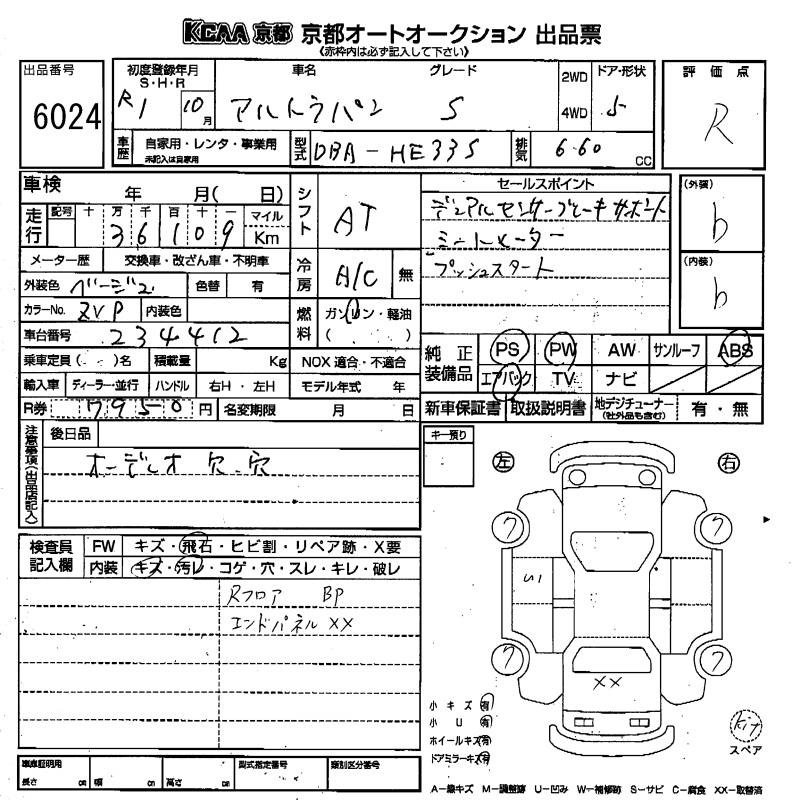 KCAA 京都 京都オートオークション 出品票
《赤枠内は必ず記入して下さい》
出品番号
6024
初度登録年月
S・H・R
R1 10月
車名 グレード
アルトラパン S
2WD
4WD
ドア・形状
5
評価点
R
車歴
自家用・レンタ・事業用
未記入は自家用
型式
DBA-HE33S
排気
6.60 CC
車検 年 月( 日)
走行
記号 十 万 千 百 十 一
3 6 1 0 9
マイル
Km
シフト
AT
セールスポイント
デュアルセンサーブレーキサポート
ミートメーター
プッシュスタート
(外装)
b
(内装)
b
メーター歴 交換車・改ざん車・不明車
冷房
A/C 無
外装色 ベージュ 色替 有
カラーNo. ZVP 内装色
燃料
ガソリン・軽油
( )
車台番号 234412
乗車定員( )名 積載量 Kg NOX 適合・不適合
輸入車 ディーラー・並行 ハンドル 右H・左H モデル年式 年
R券 7950円 名変期限 月 日
純正装備品
PS PW AW サンルーフ ABS
エアバック TV ナビ
新車保証書 取扱説明書 地デジチューナー(社外品も含む) 有・無
注意事項(出品店記入)
後日品
オーディオ穴、穴
キー預り
左 右
検査員記入欄
FW キズ・飛石・ヒビ割・リペア跡・X要
内装 キズ・汚レ・コゲ・穴・スレ・キレ・破レ
Rフロア BP
エンドパネル XX
ワ ワ
ワ ワ
XX
小キズ 有
小U 有
ホイールキズ 有
ドアミラーキズ 有
Kit
スペア
車庫証明用
長さ cm 幅 cm 高さ cm
型式指定番号 類別区分番号
A―線キズ M―調整跡 U―凹み W―補修跡 S―サビ C―腐食 XX―取替済